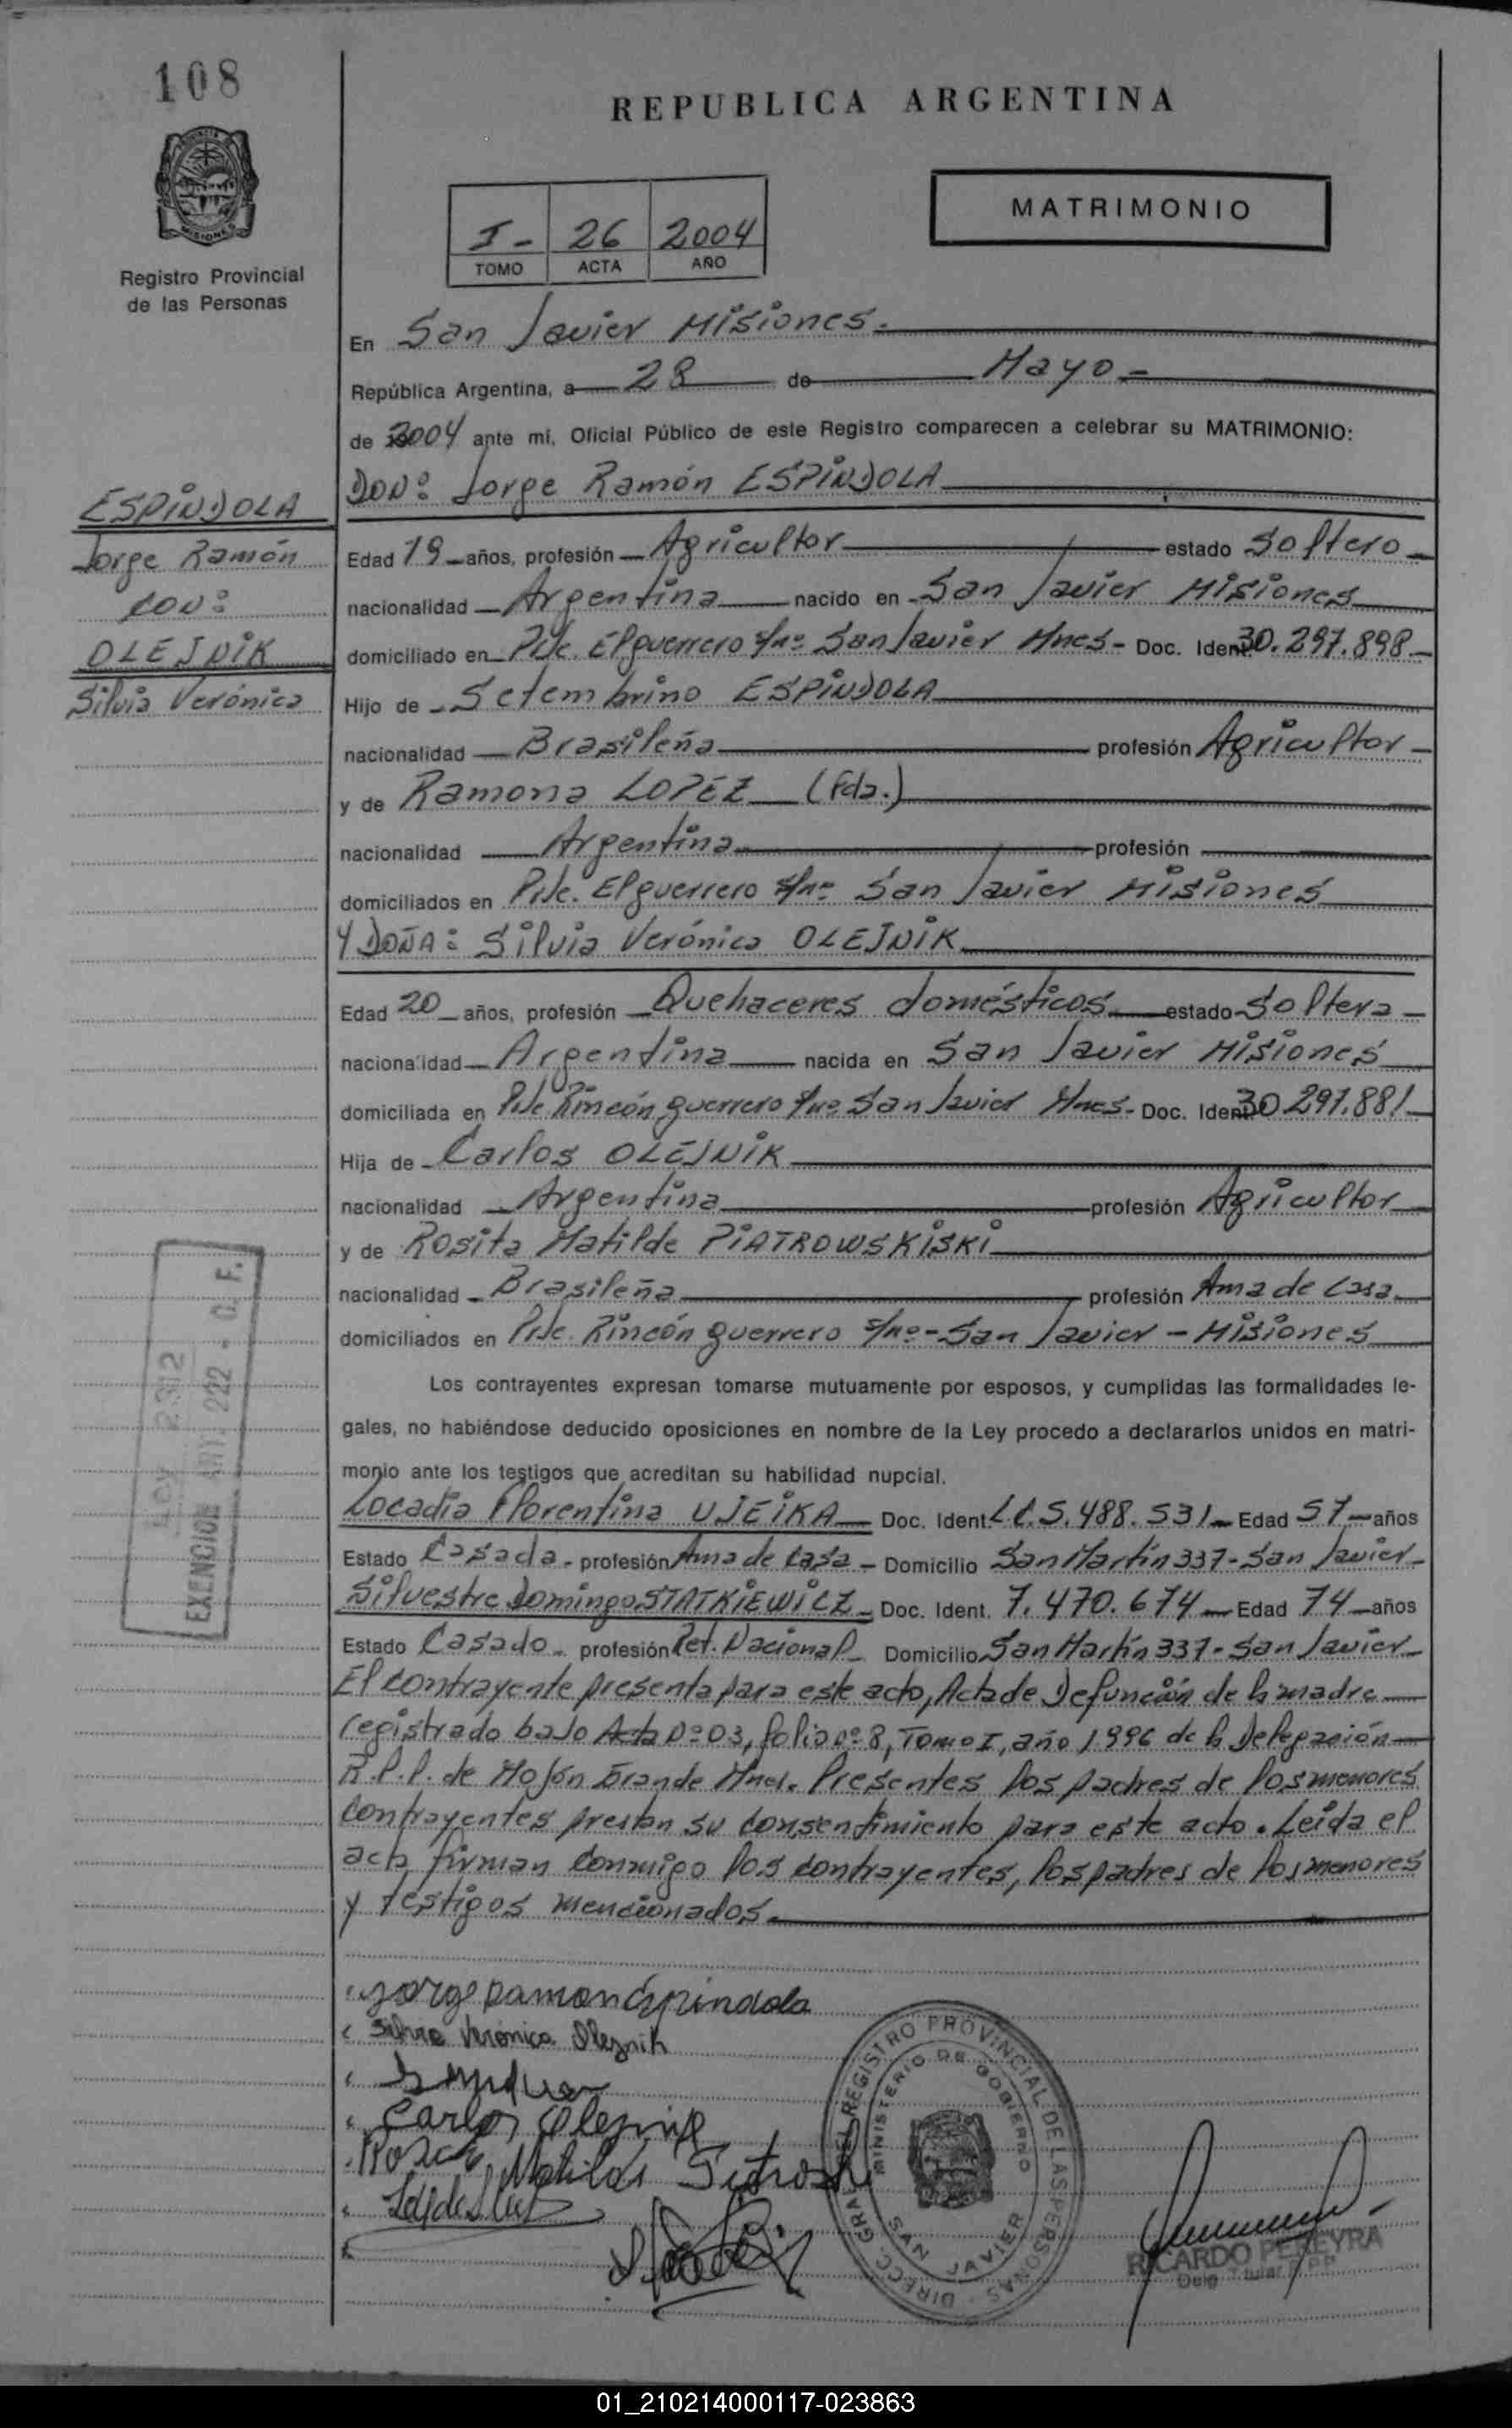 108
REPUBLICA ARGENTINA
MATRIMONIO
I - 26 2004
TOMO ACTA AÑO
MISIONES
Registro Provincial
de las Personas
En San Javier Misiones.
República Argentina, a 28 de Mayo -
de 2004 ante mi, Oficial Público de este Registro comparecen a celebrar su MATRIMONIO:
DON: Jorge Ramón ESPÍNDOLA
ESPÍNDOLA
Jorge Ramón
CON:
OLEJNIK
Silvia Verónica
Edad 19 años, profesión Agricultor estado Soltero
nacionalidad Argentina nacido en San Javier Misiones
domiciliado en Pje. El guerrero s/nº San Javier Mnes - Doc. Ident. 30.297.898
Hijo de Setembrino ESPÍNDOLA
nacionalidad Brasileña profesión Agricultor
y de Ramona LOPEZ (Fda.)
nacionalidad Argentina profesión
domiciliados en Pje. El guerrero s/nº San Javier Misiones
Y DOÑA: Silvia Verónica OLEJNIK
Edad 20 años, profesión Quehaceres domésticos estado Soltera
nacionalidad Argentina nacida en San Javier Misiones
domiciliada en Pje Rincón guerrero s/nº San Javier Mnes - Doc. Ident. 30 297.881
Hija de Carlos OLEJNIK
nacionalidad Argentina profesión Agricultor
y de Rosita Matilde PIATROWSKISKI
nacionalidad Brasileña profesión Ama de Casa
domiciliados en Pje. Rincón guerrero s/nº - San Javier - Misiones
Los contrayentes expresan tomarse mutuamente por esposos, y cumplidas las formalidades le-
gales, no habiéndose deducido oposiciones en nombre de la Ley procedo a declararlos unidos en matri-
monio ante los testigos que acreditan su habilidad nupcial.
LEY 2312
EXENCION ART. 222 - C. F.
Locadia Florentina UJEIKA Doc. Ident. L.C. 5.488.531 Edad 57 años
Estado Casada - profesión Ama de Casa - Domicilio San Martín 337 - San Javier
Silvestre Domingo STATKIEWICZ Doc. Ident. 7.470.674 Edad 74 años
Estado Casado profesión Ret. Nacional Domicilio San Martín 337 - San Javier
El contrayente presenta para este acto, Acta de Defunción de la madre
registrado bajo Acta nº 03, folio nº 8, Tomo I, año 1996 de la Delegación
R.P.P. de Mojón Grande Mnes. Presentes los padres de los menores
contrayentes prestan su consentimiento para este acto. Leída el
acta firman conmigo los contrayentes, los padres de los menores
y testigos mencionados.
Jorge Ramon Espindola
Silvia Verónica Olejnik
Carlos Olejnik
DIRECC. GRAL. DEL REGISTRO PROVINCIAL DE LAS PERSONAS
MINISTERIO DE GOBIERNO
SAN JAVIER
RICARDO PEREYRA
Deleg. Titular R.P.P.
01_210214000117-023863